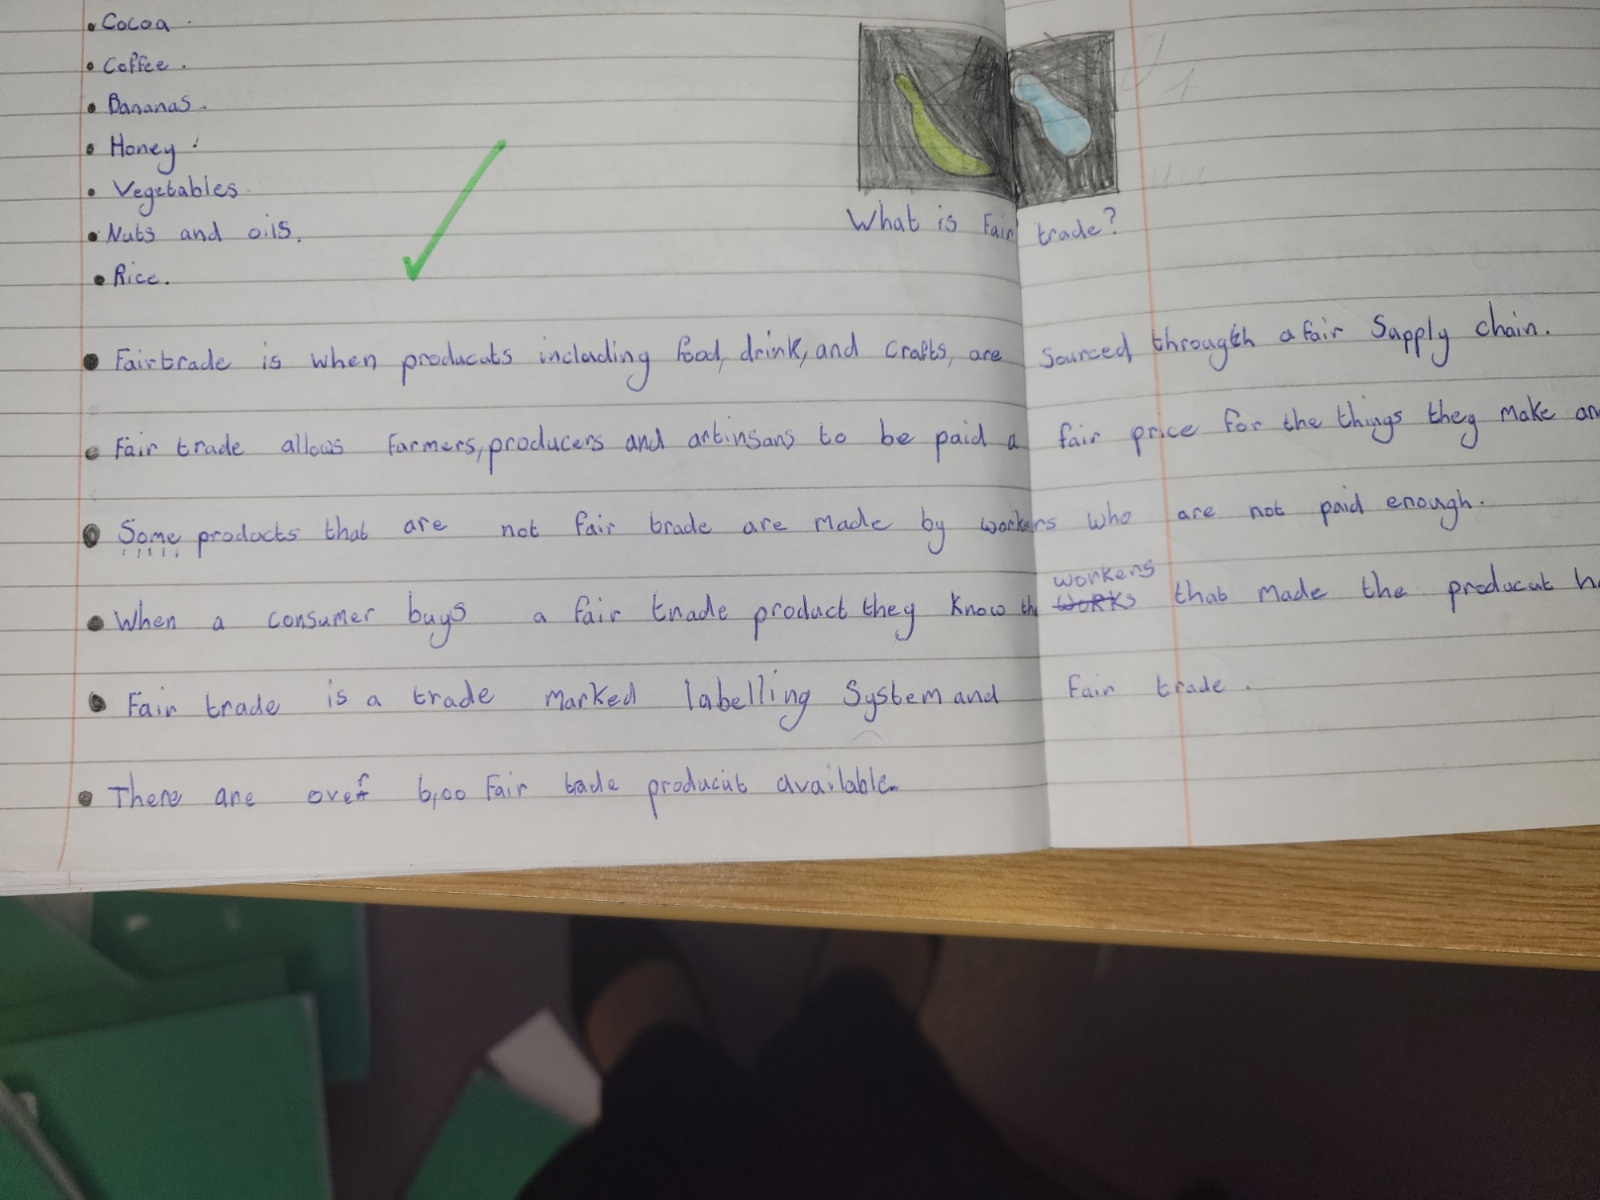 Cocoa.
Coffee.
Bananas.
Honey.
Vegetables
Nuts and oils.
Rice.
What is Fair trade?
Fairtrade is when producats including food, drink, and crafts, are sourced through a fair supply chain.
Fair trade allows farmers, producers and artinsans to be paid a fair price for the things they make an
Some products that are not fair trade are made by workers who are not paid enough.
When a consumer buys a fair trade product they know the workers that made the producat h
Fair trade is a trade marked labelling system and Fair trade.
There are over 6,00 Fair trade producat available.